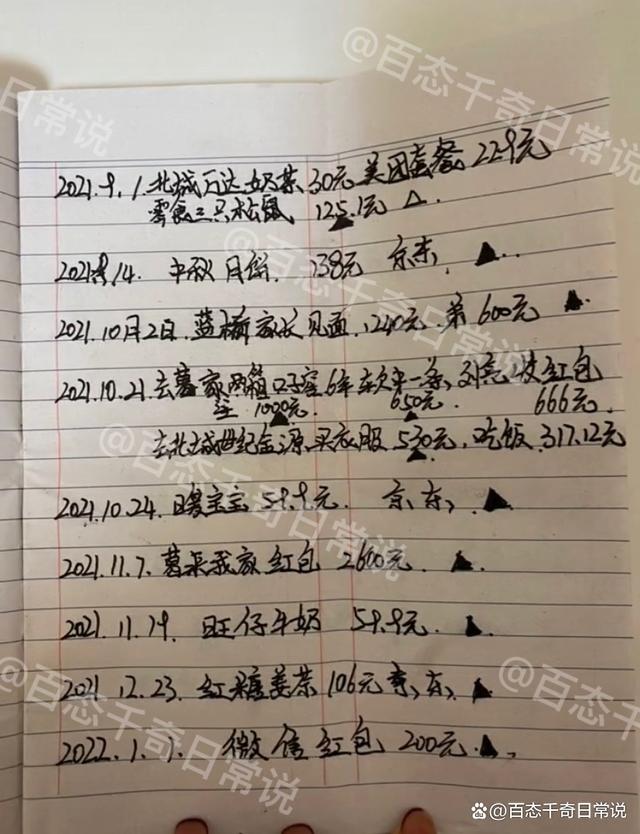 2021.9.1.北城万达奶茶30元美团套餐229元
零食三只松鼠 125.1元 △.
2021.9.14. 中秋月饼. 138元 京东, ▲..
2021.10月2日.蓝楠家长见面,1240元.弟600元 ▲.
2021.10.21.去葛家两箱口子窖6年 软中一条, 红包
1000元. 650元. 666元.
▲ ▲
去北城世纪金源买衣服530元,吃饭.317.12元
▲
2021.10.24.暖宝宝 59.9元. 京东, ▲
2021.11.7.葛来我家红包 2600元. ▲.
2021.11.19. 旺仔牛奶 59.9元. ▲.
2021.12.23.红糖姜茶106元京东, ▲
2022.1.1. 微信红包 200元.▲.
@百态千奇日常说
@百态千奇日常说
@百态千奇日常说
@百态千奇日常说
@百态千奇日常说